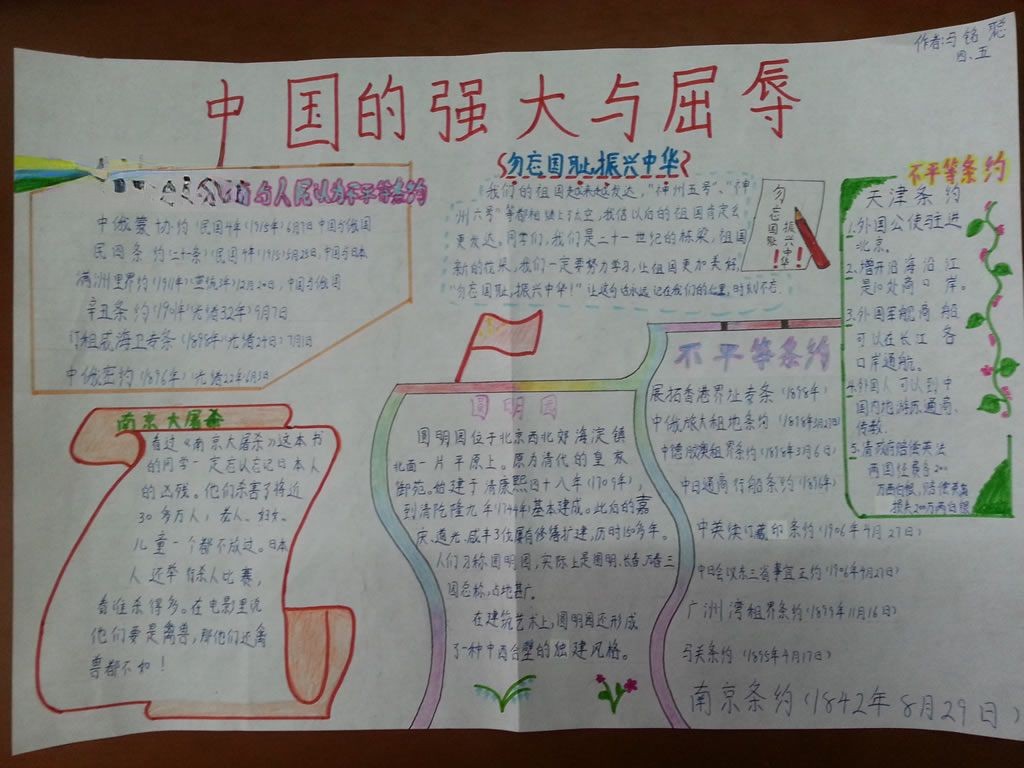 作者:马铭聪
四.五
中国的强大与屈辱
与人民认为不平等条约
中俄蒙协约(民国4年(1915年)6月7日 中国与俄国
民四条约(二十一条)(民国4年(1915)5月25日,中国与日本
满洲里界约(1911年)(宣统3年)12月20日,中国与俄国
辛丑条约(1901年)光绪32年)9月7日
订租威海卫专条(1898年(光绪24日)7月1日
中俄密约(1896年)光绪22年6月3日
勿忘国耻,振兴中华
我们的祖国越来越发达,"神州五号"、"神
州六号"等都相继上了太空,我信以后的祖国肯定会
更发达。同学们,我们是二十一世纪的栋梁,祖国
新的花朵,我们一定要努力学习,让祖国更加美好,
"勿忘国耻,振兴中华!"让这句话永远记在我们的心里,时刻不忘.
勿忘国耻
振兴中华!!
不平等条约
天津条约
1.外国公使驻进
北京.
2.增开沿海沿江
是10处商口岸。
3.外国军舰商船
可以在长江各
口岸通航。
4.外国人可以到中
国内地游历通商、
传教.
5.清政府赔偿英法
两国经费各200
万两白银,赔偿英商
损失200万两白银
南京大屠杀
看过《南京大屠杀》这本书
的同学一定忘以忘记日本人
的凶残。他们杀害了将近
30多万人,老人、妇女、
儿童一个都不放过。日本
人还举有杀人比赛,
看谁杀得多。在电影里说
他们要是禽兽,那他们还禽
兽都不如!
圆明园
圆明园位于北京西北郊海淀镇
北面一片平原上。原为清代的皇家
御苑。始建于清康熙四十八年(1709年),
到清乾隆九年(1744年)基本建成。此后的嘉
庆、道光、咸丰3位屡有修缮扩建,历时150多年。
人们习称圆明园,实际上是圆明、长春、万春三
园总称,占地甚广。
在建筑艺术上,圆明园还形成
了一种中西合壁的独建风格。
不平等条约
展拓香港界址专条(1898年)
中俄旅大租地条约(1898年3月27日)
中德胶澳租界条约(1898年3月6日)
中日通商行船条约(1896年)
中英续订藏印条约(1906年4月27日)
中日会议东三省事宜正约(1906年4月27日)
广州湾租界条约(1899年11月16日)
马关条约(1895年4月17日)
南京条约(1842年8月29日)